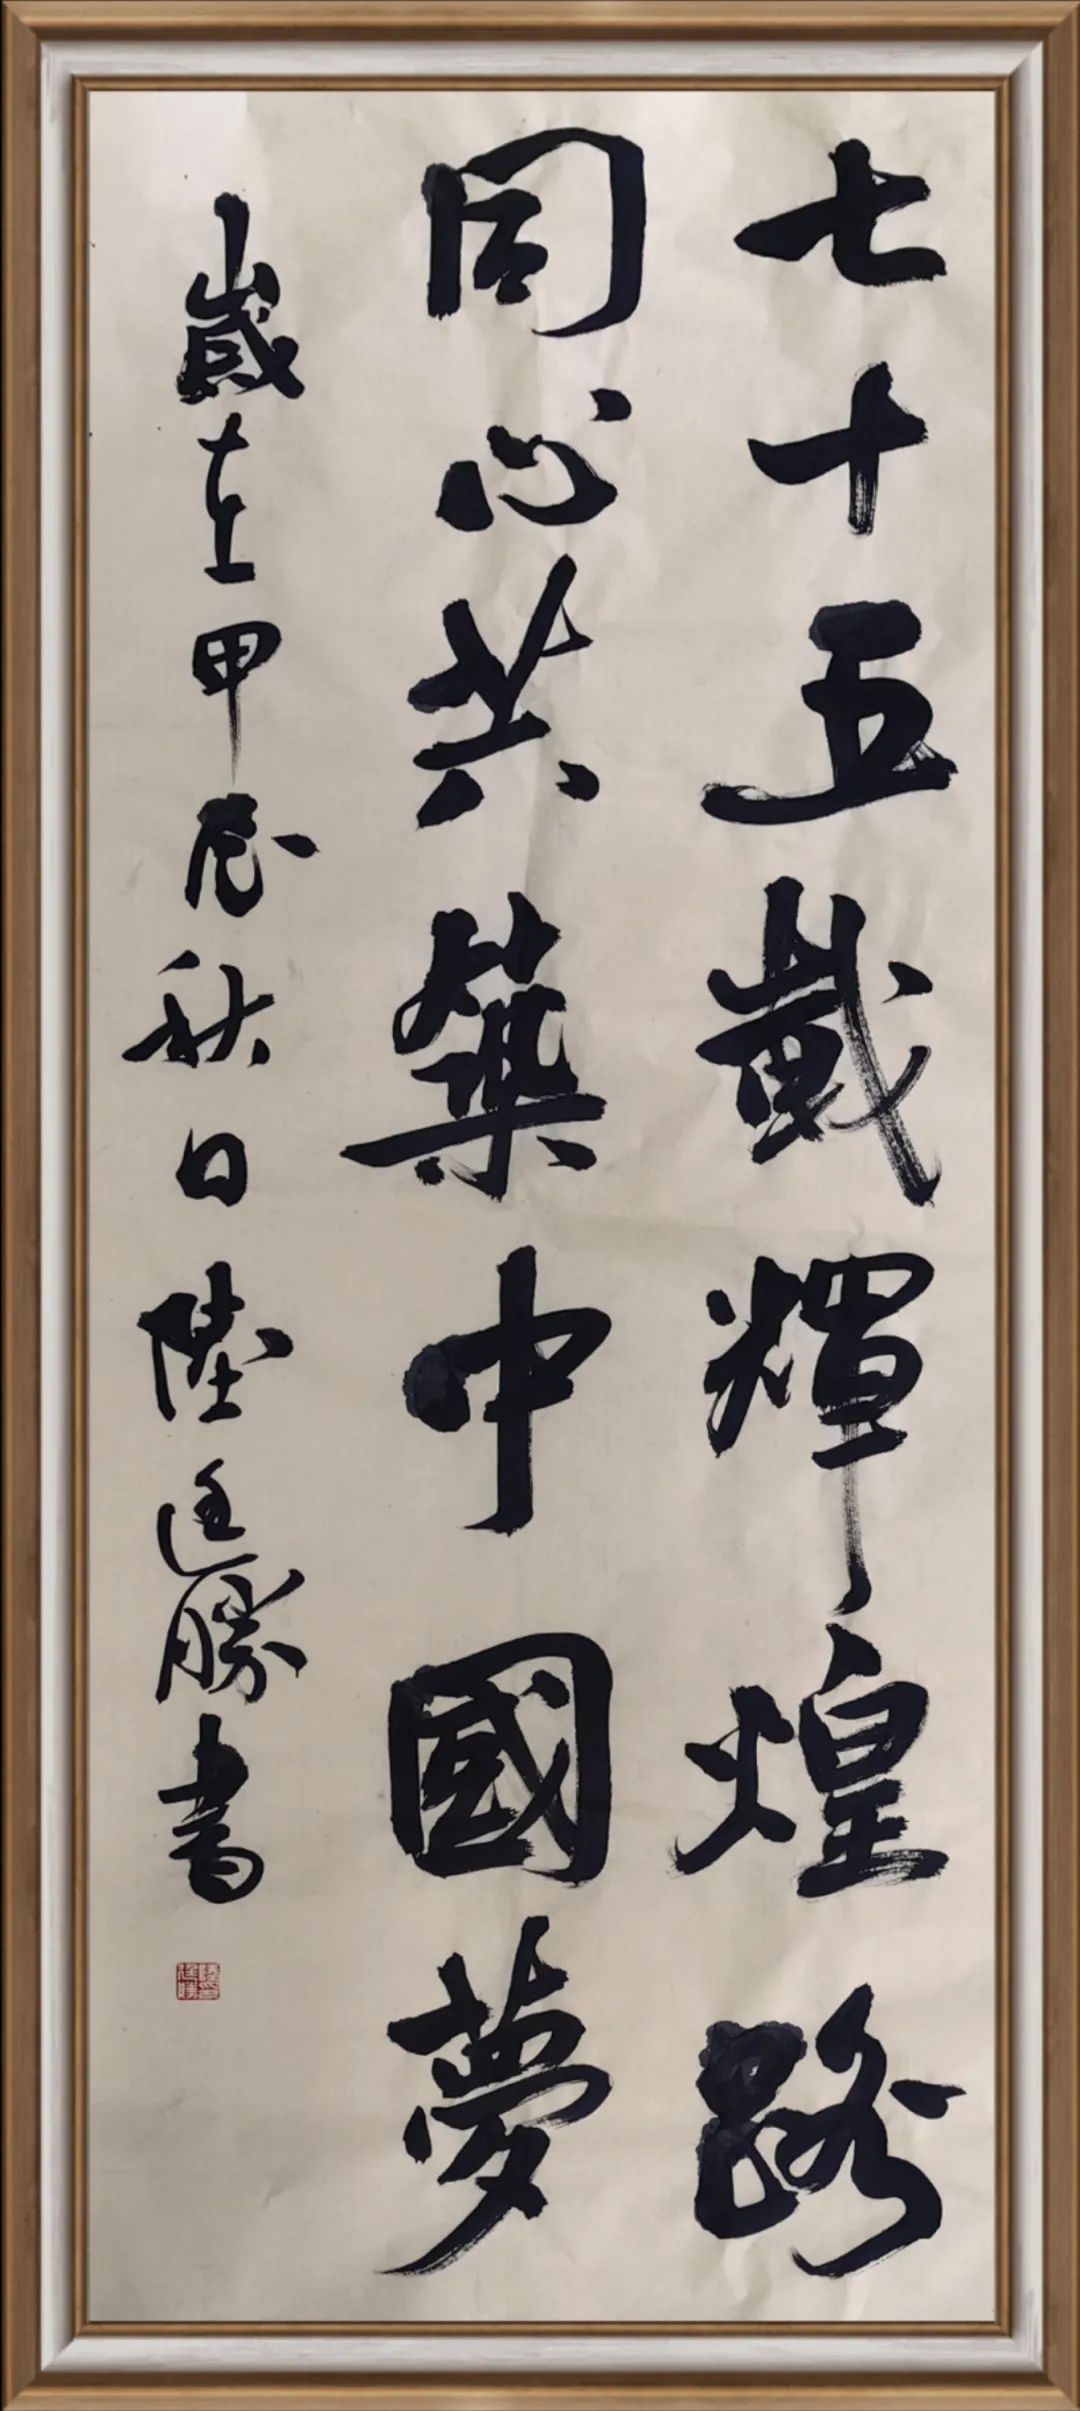 七十五載輝煌路
同心共築中國夢
歲在甲辰秋日陸廷勝書